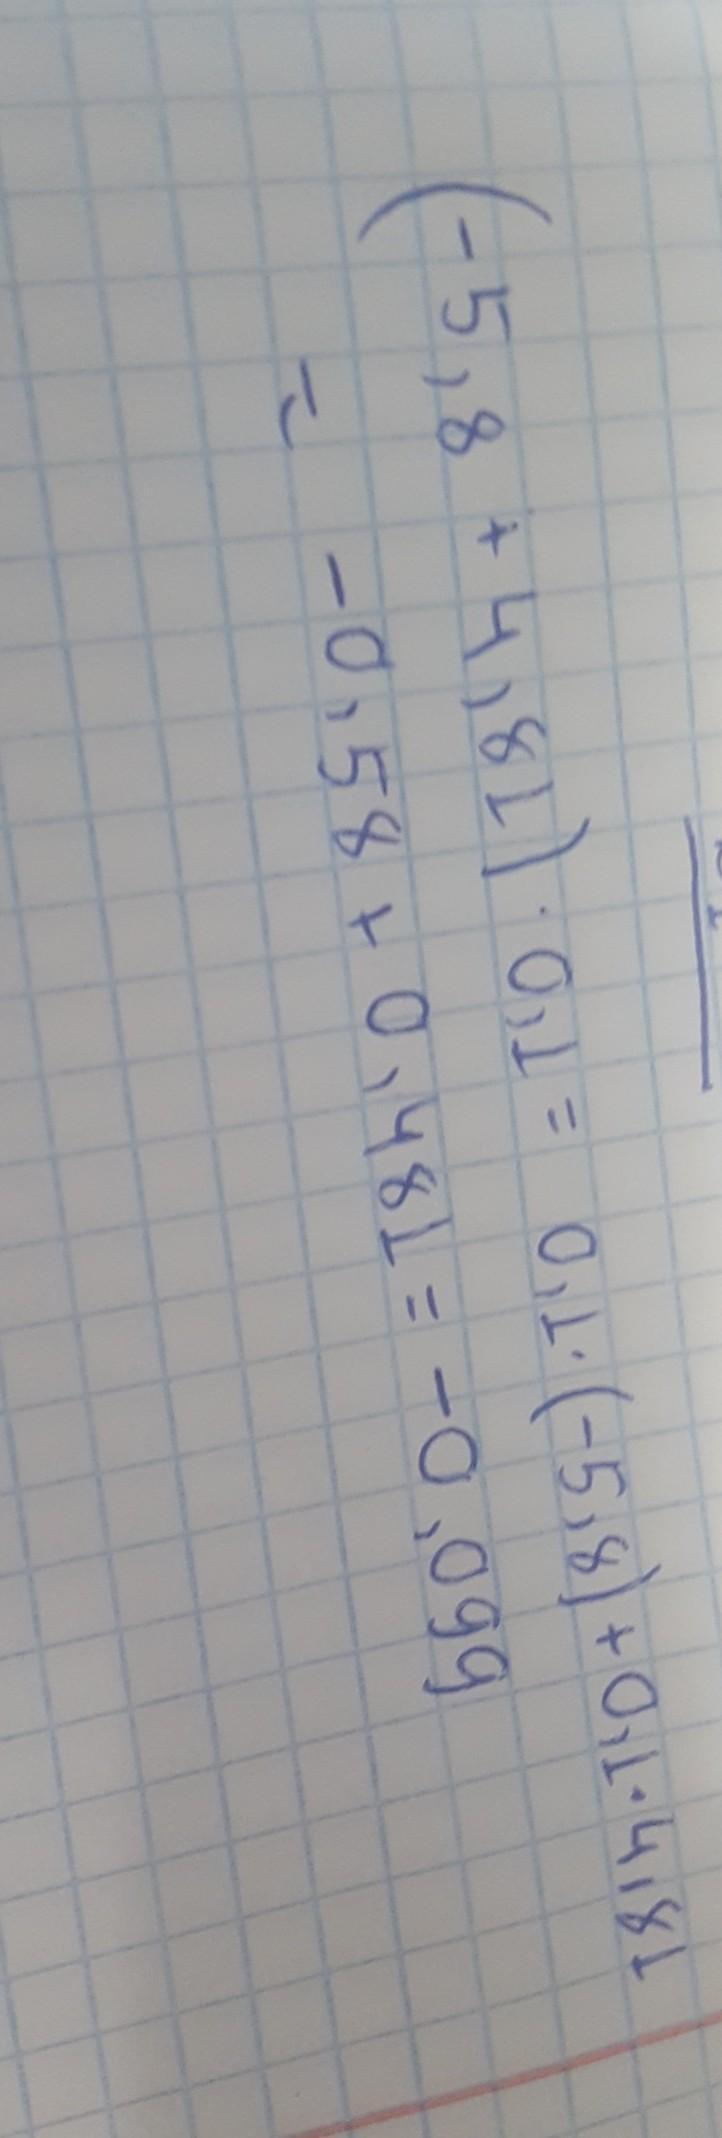 (-5,8 + 4,81) · 0,1 = 0,1 · (-5,8) + 0,1 · 4,81
= -0,58 + 0,481 = -0,099